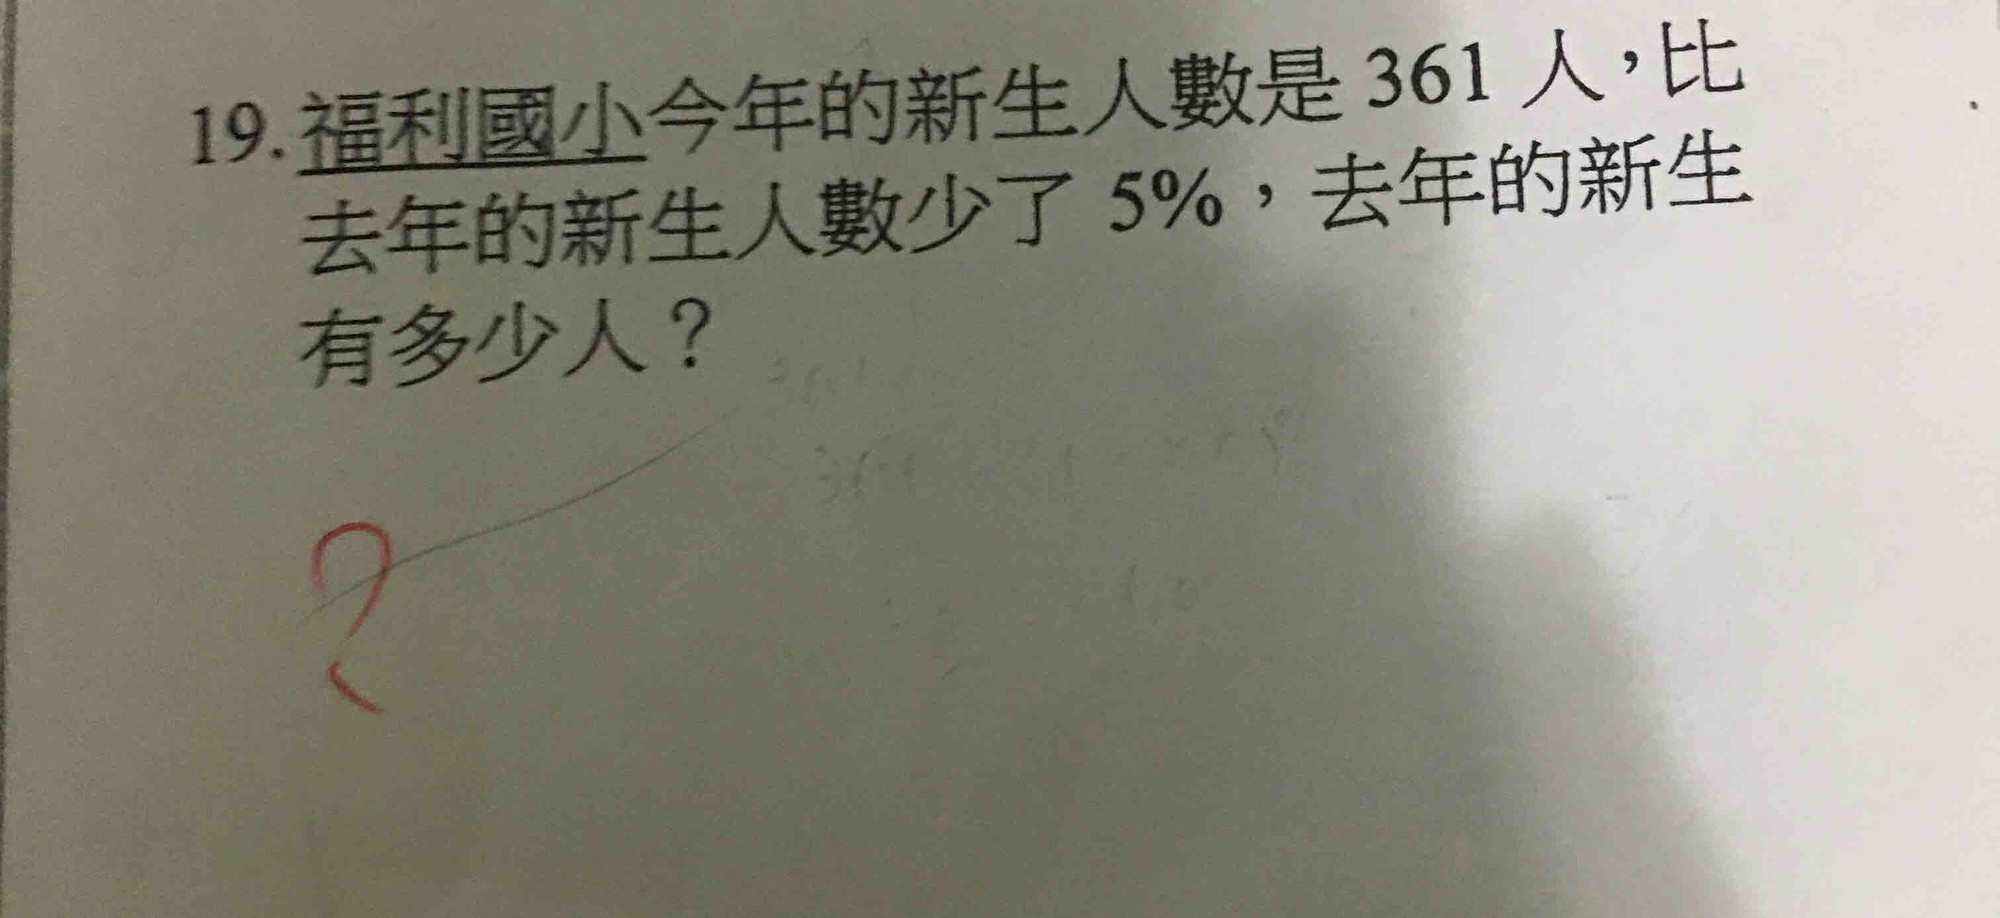 19.福利國小今年的新生人數是 361 人，比
去年的新生人數少了 5%，去年的新生
有多少人？
?